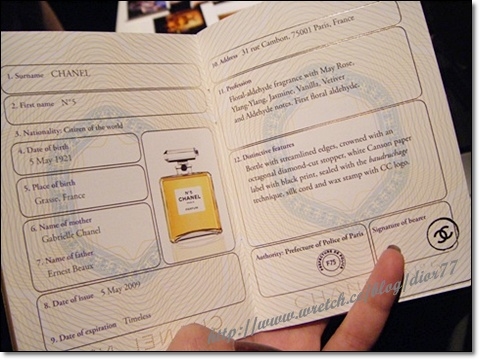 1. Surname CHANEL
2. First name N°5
3. Nationality: Citizen of the world
4. Date of birth
5 May 1921
5. Place of birth
Grasse, France
6. Name of mother
Gabrielle Chanel
7. Name of father,
Ernest Beaux
8. Date of issue 5 May 2009
9. Date of expiration Timeless
N°5
CHANEL
PARIS
PARFUM
10. Address 31 rue Cambon, 75001 Paris, France
11. Profession
Floral-aldehyde fragrance with May Rose,
Ylang-Ylang, Jasmine, Vanilla, Vetiver
and Aldehyde notes. First floral aldehyde.
12. Distinctive features
Bottle with streamlined edges, crowned with an
octagonal diamond-cut stopper, white Canson paper
label with black print, sealed with the baudruchage
technique, silk cord and wax stamp with CC logo.
Authority: Prefecture of Police of Paris
F-75
Signature of bearer
http://www.wretch.cc/blog/dior77